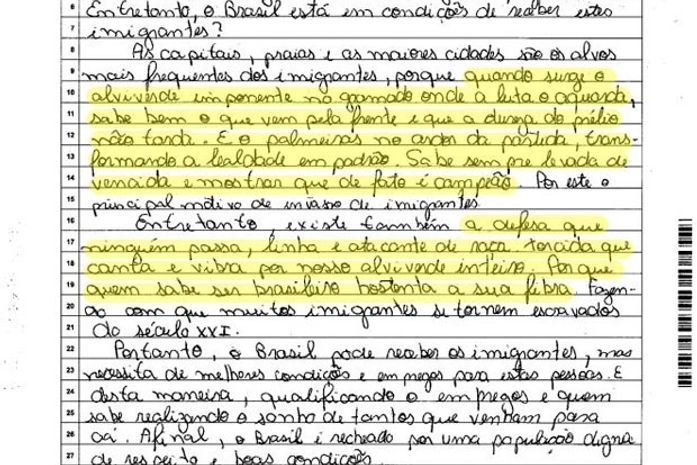 6 Entretanto, o Brasil está em condições de receber estes
7 imigrantes?
8 As capitais, praias e as maiores cidades são os alvos
9 mais frequentes dos imigrantes, porque quando surge o
10 alviverde imponente no gramado onde a luta o aguarda,
11 sabe bem o que vem pela frente e que a dureza do prélio
12 não tarda. E o palmeiras no ardor da partida, trans-
13 formando a lealdade em padrão. Sabe sempre levada de
14 vencida e mostrar que de fato é campeão. Por este o
15 principal motivo de invasão de imigrantes.
16 Entretanto, existe também a defesa que
17 ninguém passa, linha e atacante de raça. torcida que
18 canta e vibra por nosso alviverde inteiro. Porque
19 quem sabe ser brasileiro hostenta a sua fibra. Fazen-
20 do com que muitos imigrantes se tornem escravados
21 do século XXI.
22 Portanto, o Brasil pode receber os imigrantes, mas
23 necessita de melhores condições e empregos para estas pessoas. E
24 desta maneira, qualificando o empregos e quem
25 sabe realizando o sonho de tantos que venham para
26 cá. Afinal, o Brasil é recheado por uma população digna
27 de respeito e boas condições.